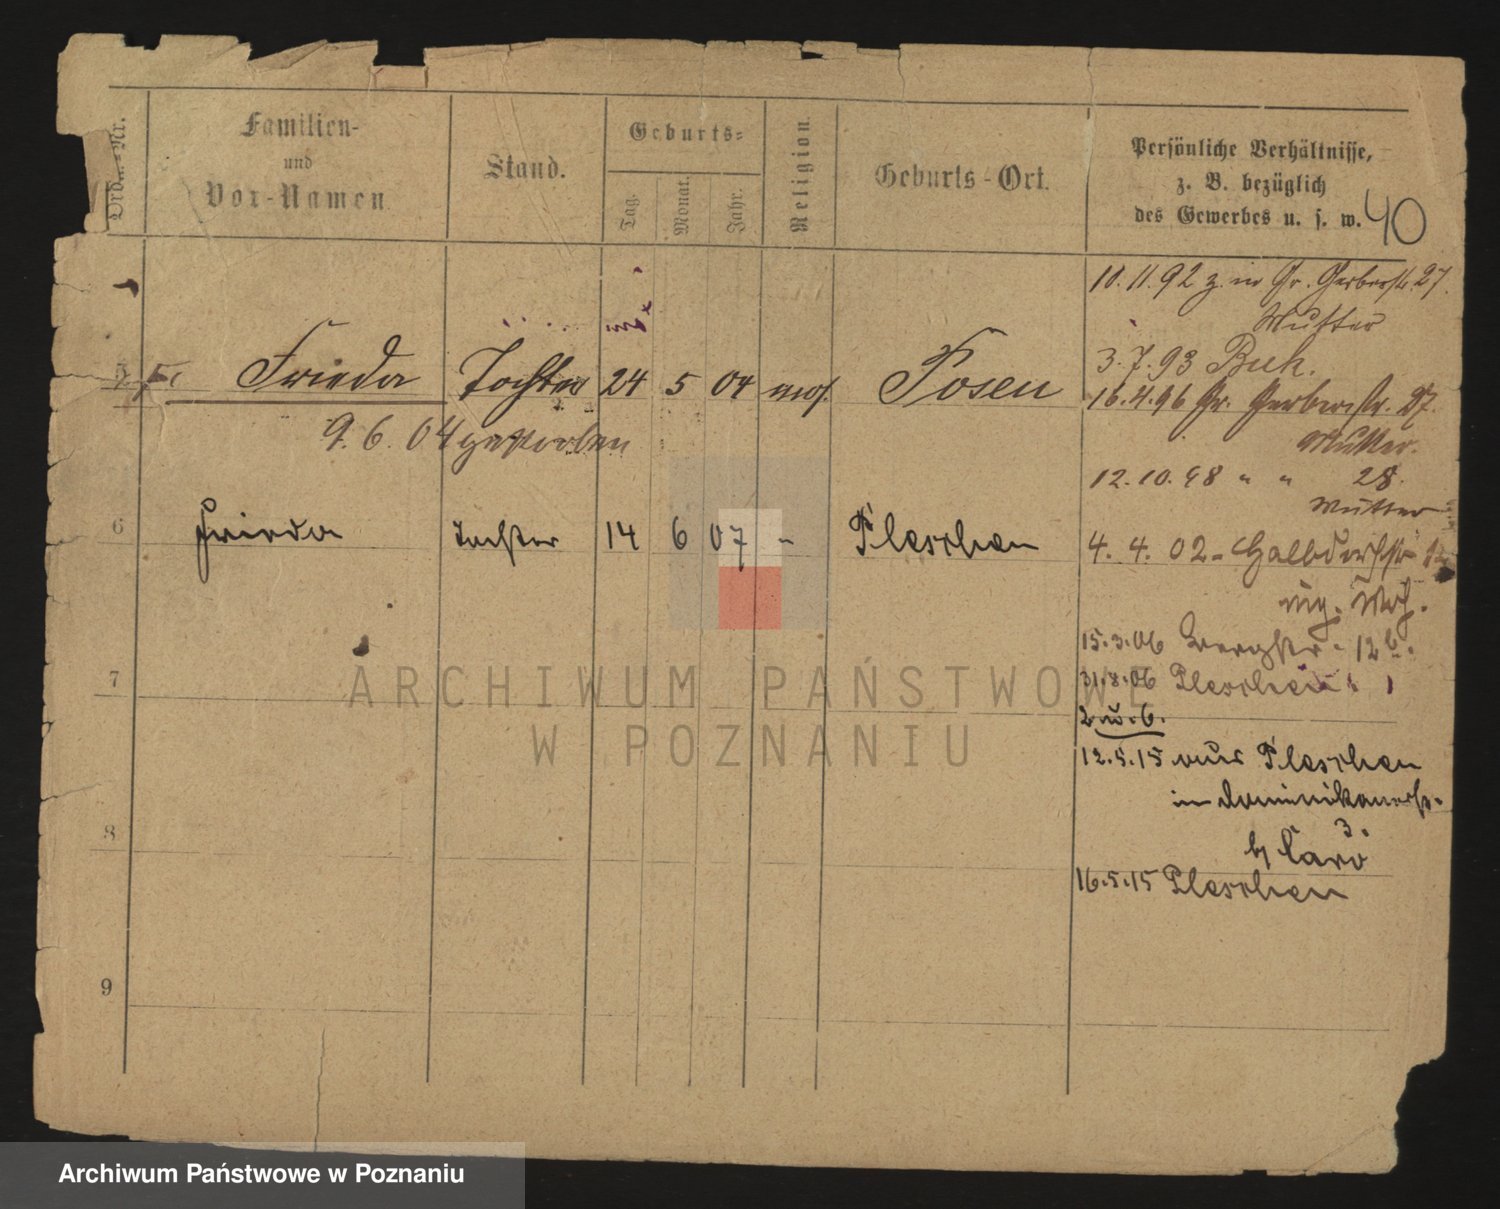 Ord.-Nr.
Familien-
und
Vor-Namen
Stand.
Geburts=
Tag.
Monat.
Jahr.
Religion.
Geburts-Ort.
Persönliche Verhältnisse,
z. B. bezüglich
des Gewerbes u. s. w.
40
5 5. Frieda Tochter 24 5 04 mos. Posen
9.6.04 gestorben
6 Frieda Tochter 14 6 07 " Pleschen
7
8
9
10.11.92 z. in Gr. Gerberstr. 27.
Mutter
3.7.93 Buk.
16.4.96 Gr. Gerberstr. 27.
Mutter.
12.10.98 " " 28.
Mutter
4. 4. 02 - Halbdorfstr
15.3.06 Bergstr. 12b.
31.8.06 Pleschen
2 u. 6.
12.5.15 aus Pleschen
in Dominikanerstr.
3.
b/ Caro
16.5.15 Pleschen
ARCHIWUM PAŃSTWOWE
W POZNANIU
Archiwum Państwowe w Poznaniu